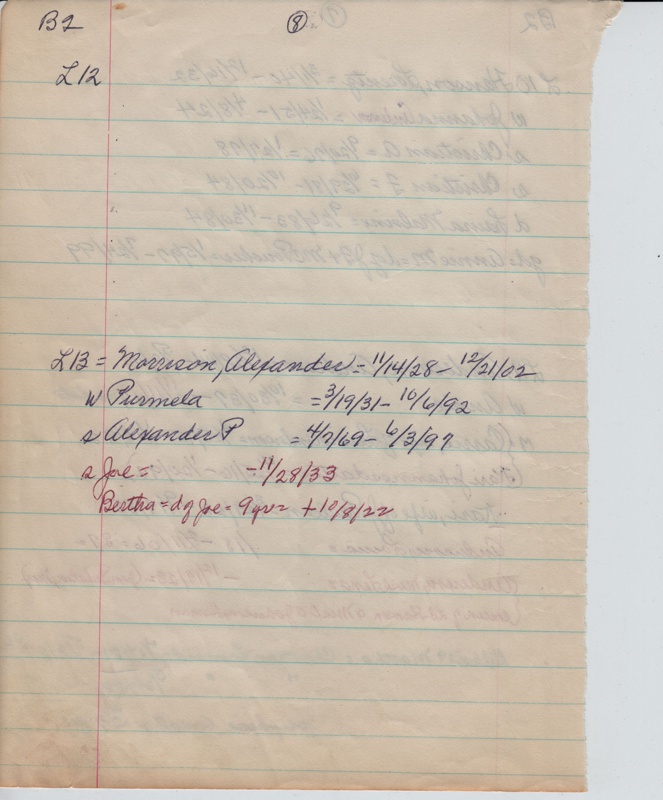 B2 8
L12
L13 = Morrison, Alexander = 11/14/28 - 12/21/02
w Purmela = 3/19/31 - 10/6/92
s Alexander P = 4/7/69 - 6/3/97
s Joe = - 11/28/33
Bertha = d of Joe = 9 yrs = + 10/8/22